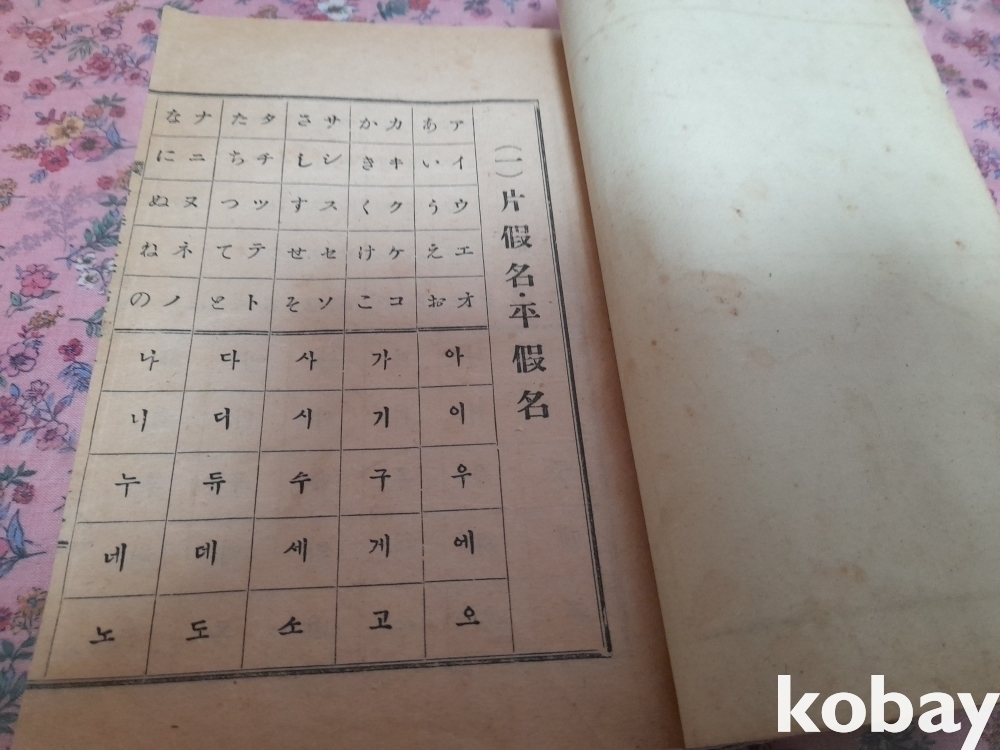 (一)片假名·平假名
ア イ ウ エ オ
あ い う え お
아 이 우 에 오
カ キ ク ケ コ
か き く け こ
가 기 구 게 고
サ シ ス セ ソ
さ し す せ そ
사 시 수 세 소
タ チ ツ テ ト
た ち つ て と
다 디 듀 데 도
ナ ニ ヌ ネ ノ
な に ぬ ね の
나 니 누 네 노
kobay